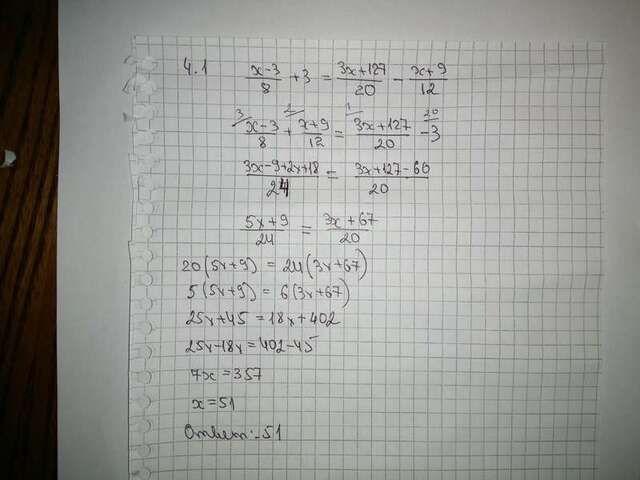 4.1 (x-3)/8 + 3 = (3x+127)/20 - (x+9)/12
3/ (x-3)/8 + 2/ (x+9)/12 = 1/ (3x+127)/20 - 20/ 3
(3x-9+2x+18)/24 = (3x+127-60)/20
(5x+9)/24 = (3x+67)/20
20(5x+9) = 24(3x+67)
5(5x+9) = 6(3x+67)
25x+45 = 18x+402
25x-18x = 402-45
7x = 357
x = 51
Ответ: 51